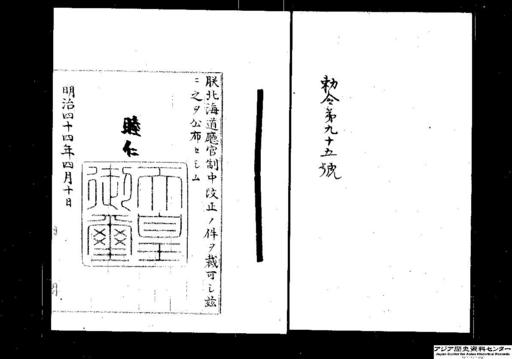 勅令第九十五號
朕北海道廳官制中改正ノ件ヲ裁可シ茲
ニ之ヲ公布セシム
睦仁
天皇
御璽
明治四十四年四月十日
アジア歴史資料センター
Japan Center for Asian Historical Records